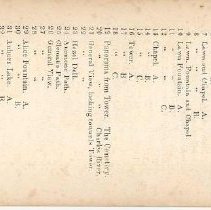 7 Lawn and Chapel. A.
8 " " " B.
9 Lawn, Fountain and Chapel
10 Lawn Fountain. A.
11 " " B.
12 " " C.
13 Chapel. A.
14 " B.
15 " C.
16 Tower. A.
17 " B.
18 " C.
20 Panorama from Tower. The Cemetery.
21 " " " Charles River.
22 General View, looking towards Tower.
23 Hazel Dell.
24
25
26 General View.
28 " "
29 Alice Fountain. A.
30 " " B.
31 Auburn Lake. A.
32 " " B.